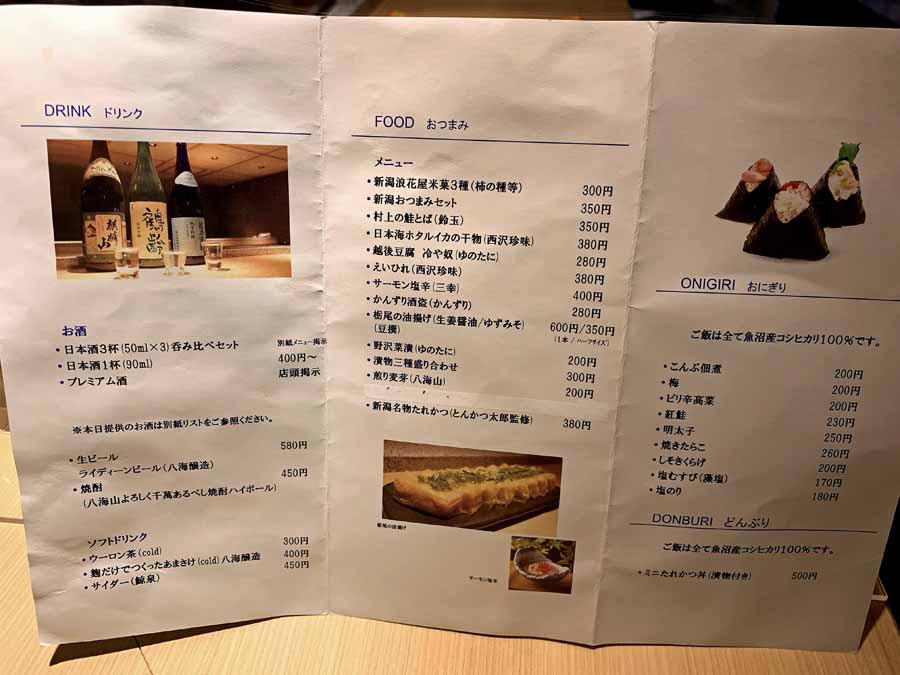 DRINK ドリンク
鶴齢
お酒
・日本酒3杯(50ml×3)呑み比べセット 別紙メニュー掲示
・日本酒1杯(90ml) 400円〜
・プレミアム酒 店頭掲示
※本日提供のお酒は別紙リストをご参照ください。
・生ビール 580円
ライディーンビール(八海醸造)
・焼酎 450円
(八海山よろしく千萬あるべし焼酎ハイボール)
ソフトドリンク
・ウーロン茶(cold) 300円
・麹だけでつくったあまさけ(cold)八海醸造 400円
・サイダー(鯨泉) 450円
FOOD おつまみ
メニュー
・新潟浪花屋米菓3種(柿の種等) 300円
・新潟おつまみセット 350円
・村上の鮭とば(鈴玉) 350円
・日本海ホタルイカの干物(西沢珍味) 380円
・越後豆腐 冷や奴(ゆのたに) 280円
・えいひれ(西沢珍味) 380円
・サーモン塩辛(三幸) 400円
・かんずり酒盗(かんずり) 280円
・栃尾の油揚げ(生姜醤油/ゆずみそ) 600円/350円
(豆撰) (1本/ハーフサイズ)
・野沢菜漬(ゆのたに) 200円
・漬物三種盛り合わせ 300円
・煎り麦芽(八海山) 200円
・新潟名物たれかつ(とんかつ太郎監修) 380円
栃尾の油揚げ
サーモン塩辛
ONIGIRI おにぎり
ご飯は全て魚沼産コシヒカリ100%です。
・こんぶ佃煮 200円
・梅 200円
・ピリ辛高菜 200円
・紅鮭 230円
・明太子 250円
・焼きたらこ 260円
・しそきくらげ 200円
・塩むすび(藻塩) 170円
・塩のり 180円
DONBURI どんぶり
ご飯は全て魚沼産コシヒカリ100%です。
・ミニたれかつ丼(漬物付き) 500円